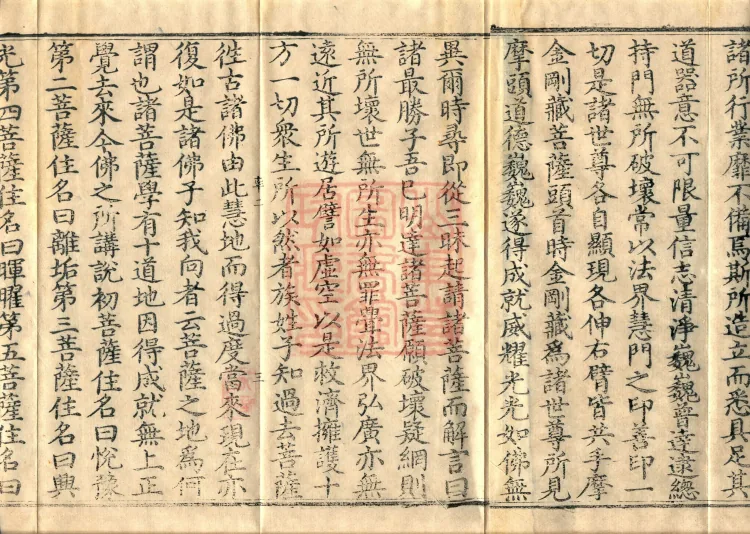 諸所行業靡不備焉斯所造立而悉具足其
道器意不可限量信志清淨巍巍普達逮總
持門無所破壞常以法界慧門之印善印一
切是諸世尊各自顯現各伸右臂皆共手摩
金剛藏菩薩頭首時金剛藏爲諸世尊所見
摩頭道德巍巍遂得成就威耀光光如佛無
異爾時尋即從三昧起請諸菩薩而解言曰
諸最勝子吾已明達諸菩薩願破壞疑網則
無所壞世無所生亦無罪舋法界弘廣亦無
遠近其所遊居譬如虛空以是救濟擁護十
方一切衆生所以然者族姓子知過去菩薩
往古諸佛由此慧地而得過度當來現在亦
復如是諸佛子知我向者云菩薩之地爲何
謂也諸菩薩學有十道地因得成就無上正
覺去來今佛之所講說初菩薩住名曰悅豫
第二菩薩住名曰離垢第三菩薩住名曰興
光第四菩薩住名曰暉曜第五菩薩住名曰